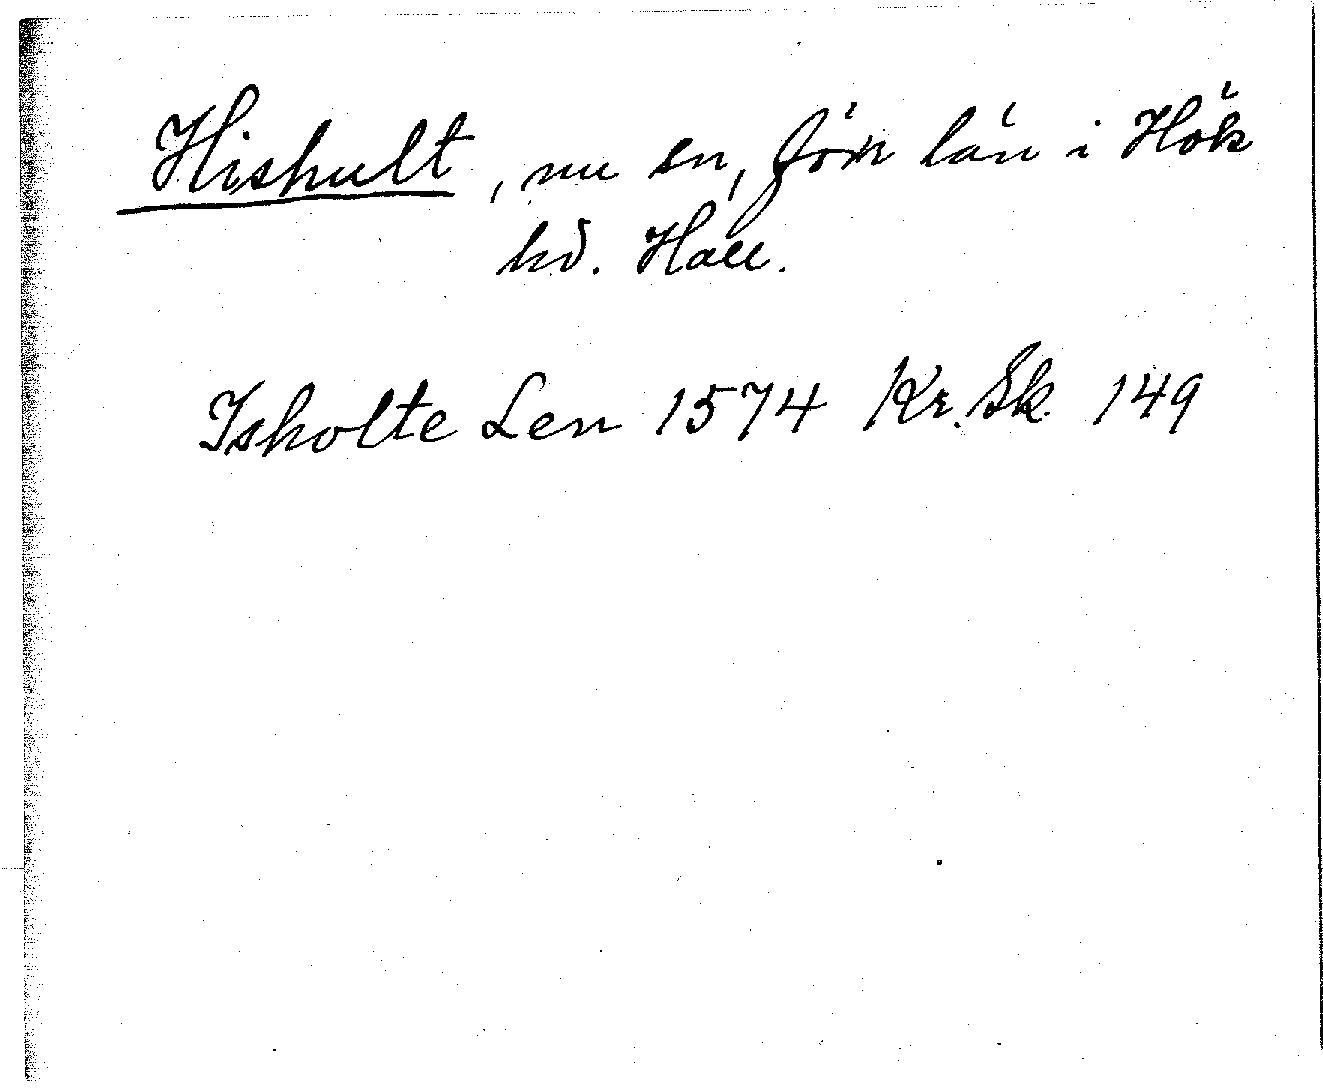 Hishult, nu sn, förr län i Hök
hd. Hall.
Isholte Len 1574 Kr. Sk. 149